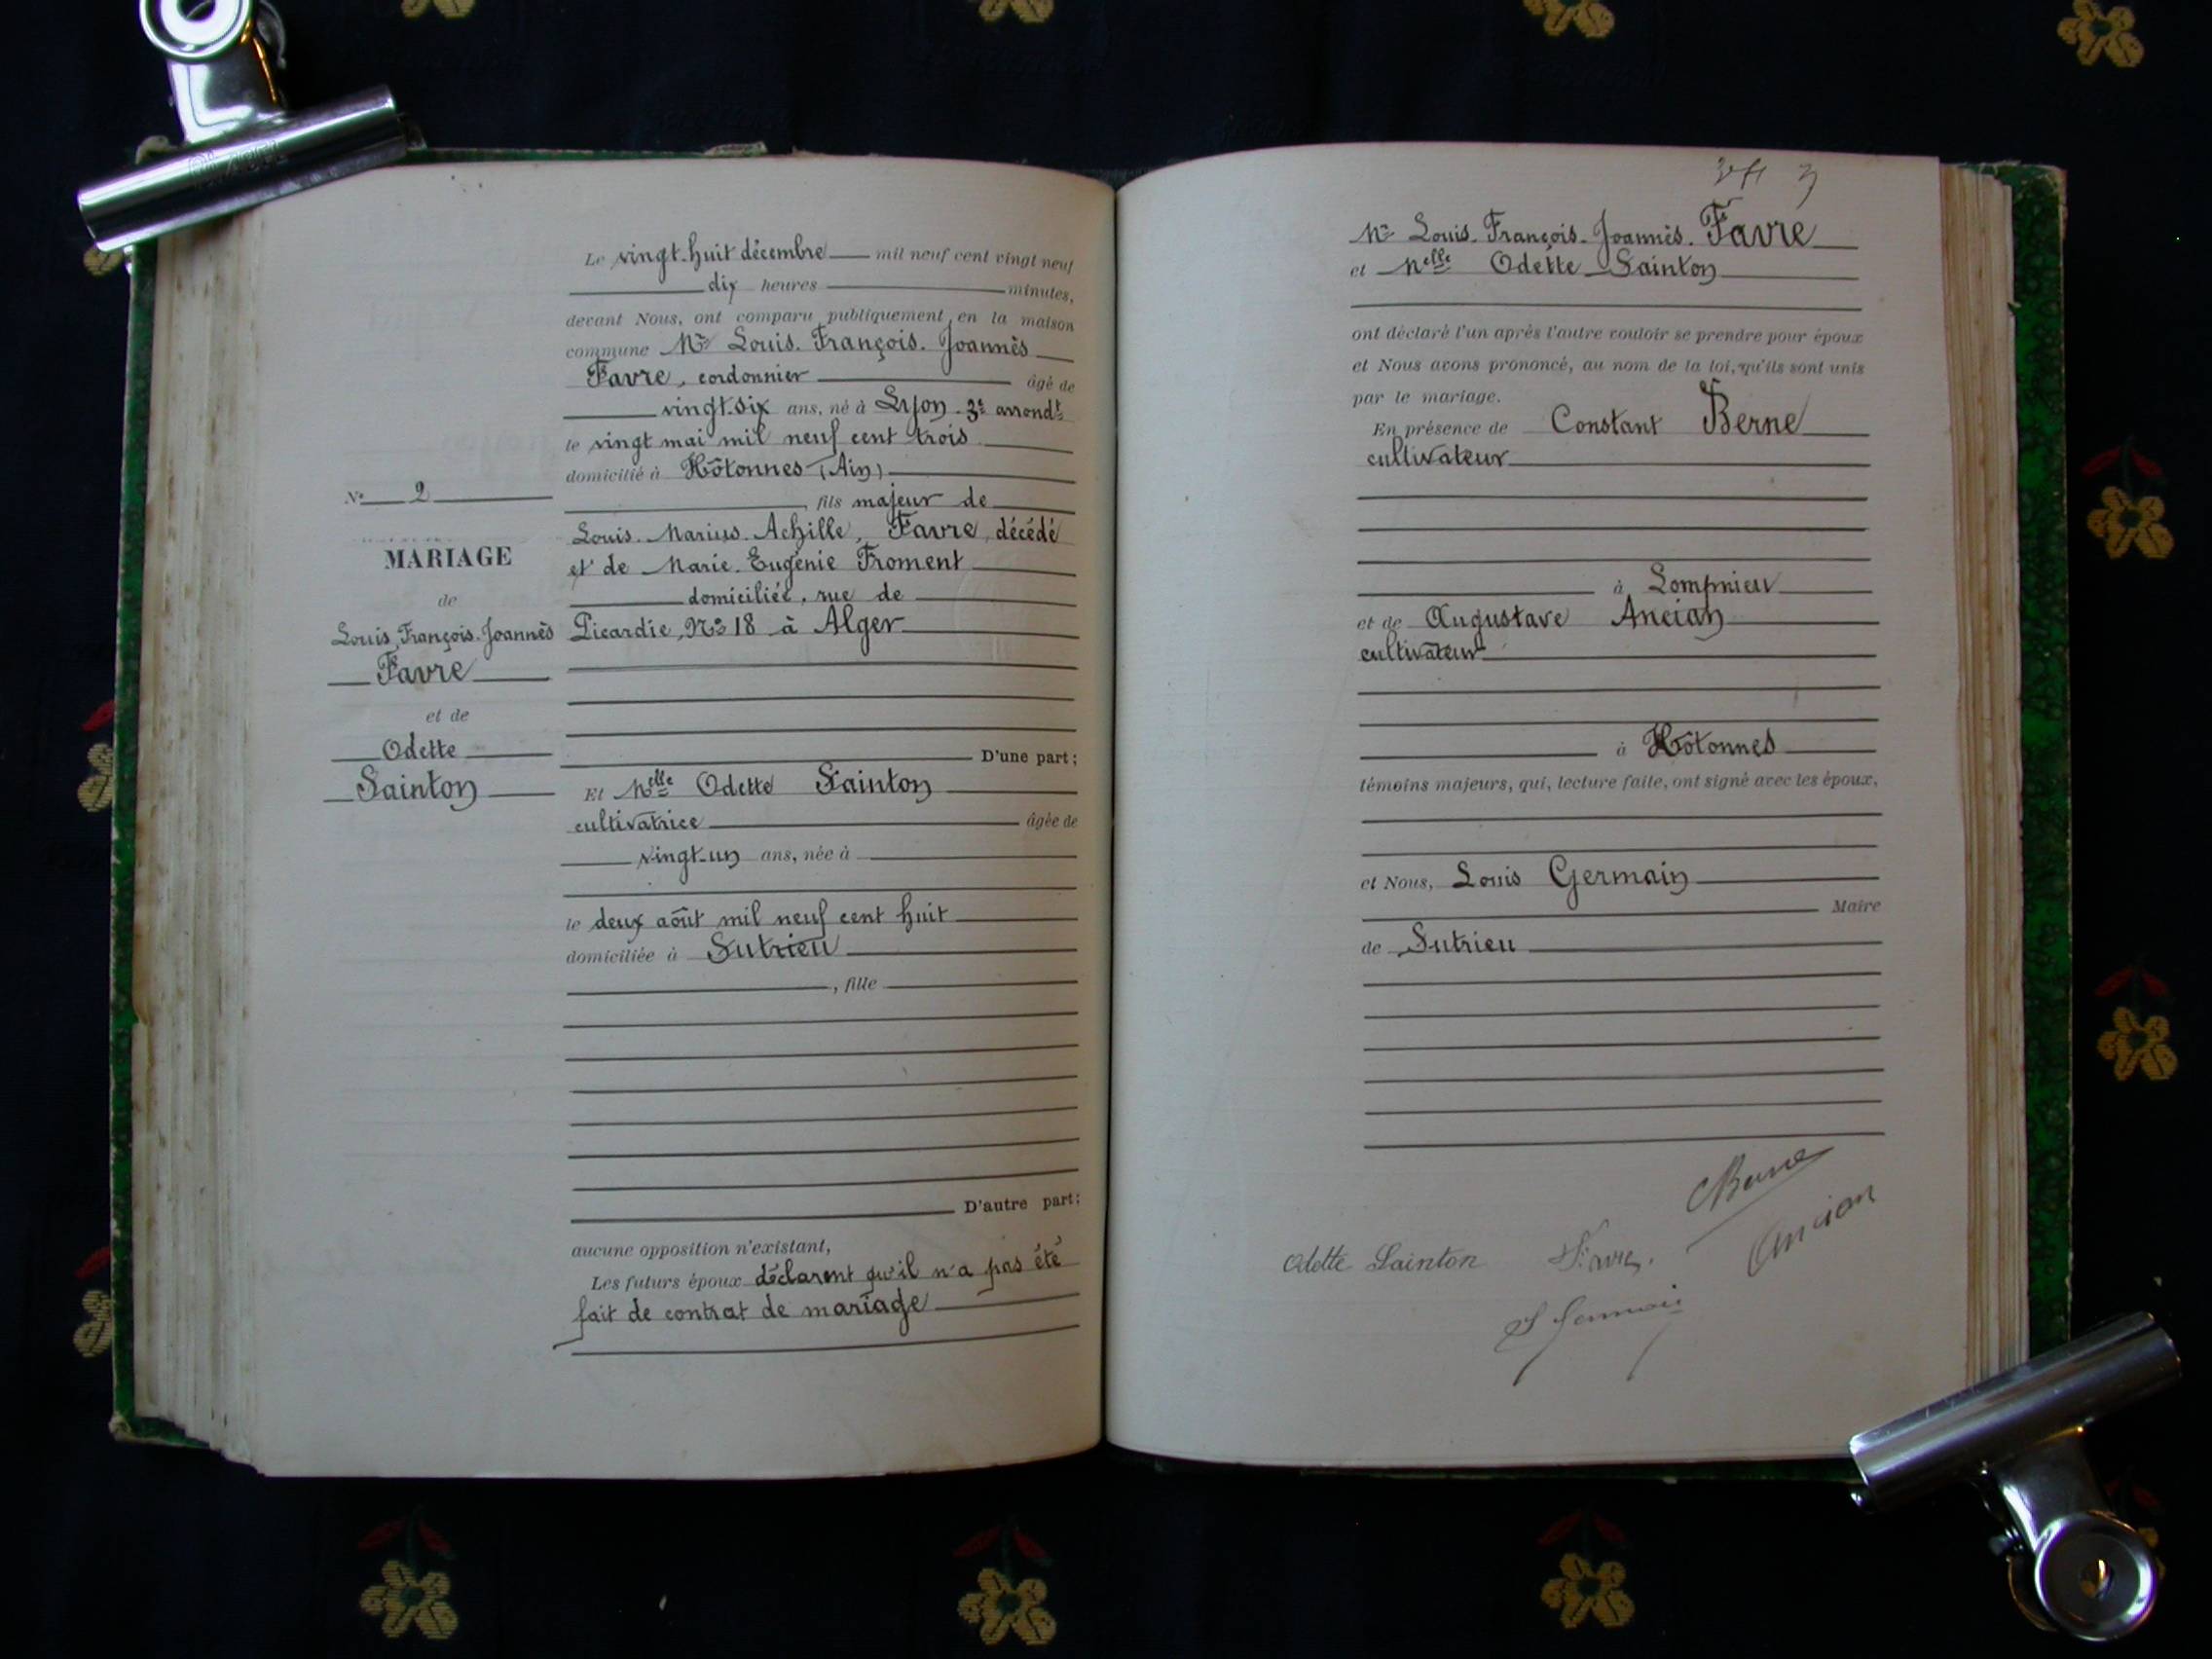 Le vingt-huit décembre mil neuf cent vingt neuf
dix heures minutes,
devant Nous, ont comparu publiquement en la maison
commune Mr Louis. François. Joannès
Favre, cordonnier âgé de
vingt-six ans, né à Lyon. 3e arrondt
le vingt mai mil neuf cent trois
domicilié à Hôtonnes (Ain)
fils majeur de
Louis. Marius. Achille, Favre, décédé
et de Marie. Eugénie Froment
domiciliée, rue de
Picardie, No 18 à Alger
D'une part;
No 2
MARIAGE
de
Louis, François. Joannès
Favre
et de
Odette
Sainton
Et Melle Odette Sainton
cultivatrice âgée de
vingt-un ans, née à
le deux août mil neuf cent huit
domiciliée à Sutrieu
, fille
D'autre part;
aucune opposition n'existant,
Les futurs époux déclarent qu'il n'a pas été
fait de contrat de mariage
Mr Louis. François. Joannès. Favre
et Melle Odette Sainton
ont déclaré l'un après l'autre vouloir se prendre pour époux
et Nous avons prononcé, au nom de la loi, qu'ils sont unis
par le mariage.
En présence de Constant Berne
cultivateur
à Lompnieu
et de Augustave Ancian
cultivateur
à Hôtonnes
témoins majeurs, qui, lecture faite, ont signé avec les époux,
et Nous, Louis Germain
Maire
de Sutrieu
CBerne
Ancian
Odette Sainton Favre.
L Germain